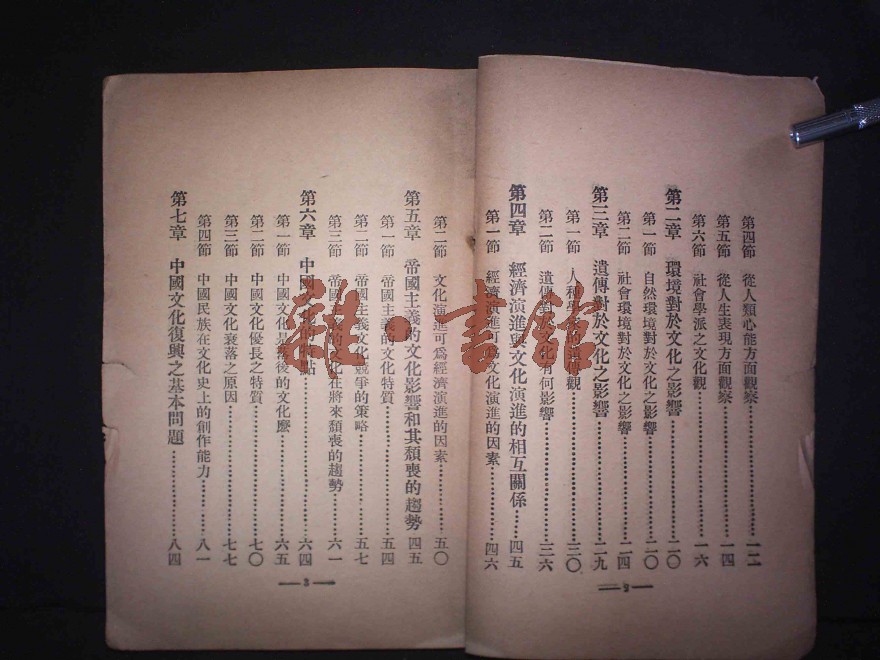 第四節 從人類心能方面觀察………一二
第五節 從人生表現方面觀察………一四
第六節 社會學派之文化觀………一六
第二章 環境對於文化之影響………二〇
第一節 自然環境對於文化之影響………二〇
第二節 社會環境對於文化之影響………二四
第三章 遺傳對於文化之影響………二九
第一節 人種學的遺傳觀………三〇
第二節 遺傳對於文化有何影響………三六
第四章 經濟演進與文化演進的相互關係………四五
第一節 經濟演進可爲文化演進的因素………四六
第二節 文化演進可爲經濟演進的因素………五〇
第五章 帝國主義的文化影響和其頹喪的趨勢 四五
第一節 帝國主義的文化特質………五四
第二節 帝國主義文化競爭的策略………五七
第三節 帝國主義的文化在將來頹喪的趨勢………六一
第六章 中國文化的 點………六四
第一節 中國文化是落後的文化麽………六五
第二節 中國文化優長之特質………七〇
第三節 中國文化衰落之原因………七七
第四節 中國民族在文化史上的創作能力………八一
第七章 中國文化復興之基本問題………八四
—3—
雜·書館